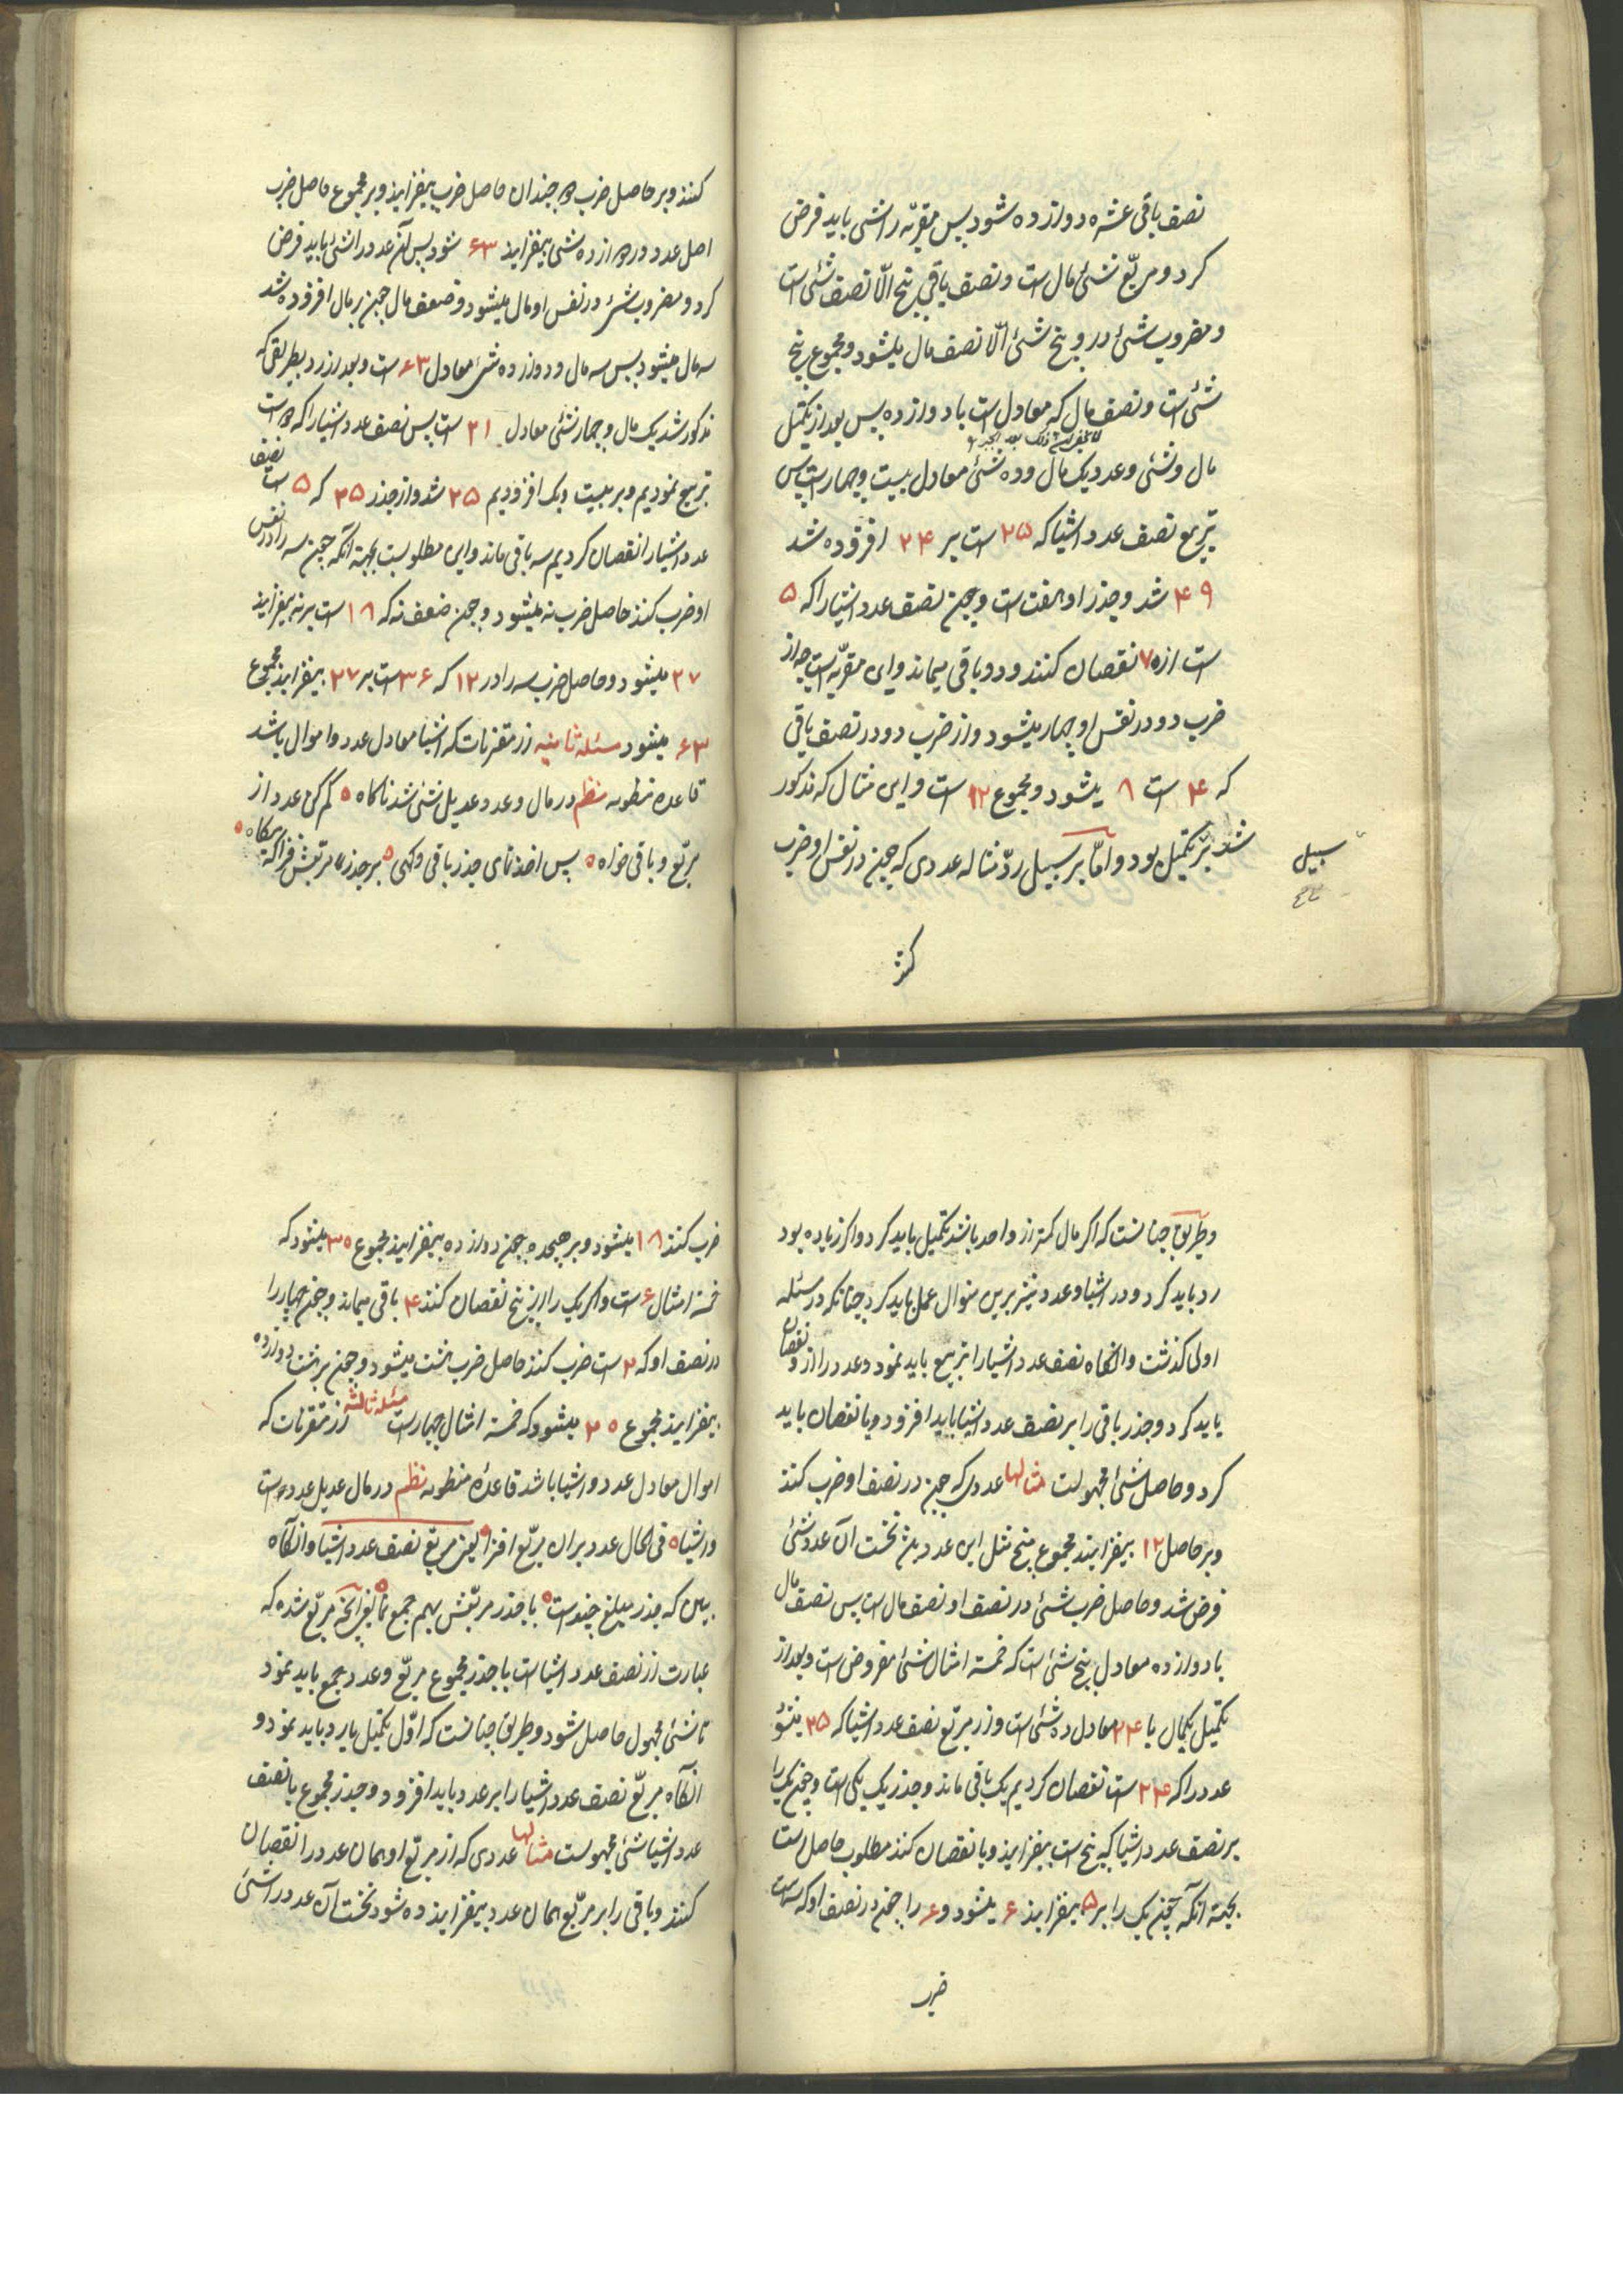 نصف باقی عشره دوازده شود پس مقربّه را شئ باید فرض
کرد و مربّع شئ مال است و نصف باقی پنج الّا نصف شئ است
و مضروب شئ در و پنج شئ الّا نصف مال میشود و مجموع پنج
شئ است و نصف مال که معادل است با دوازده پس بعد از تکمیل
مال و شئ و عدد یک مال و ده شئ معادل بیست و چهار است پس
تربیع نصف عدد اشیا که ۲۵ ست بر ۲۴ افزوده شد
۴۹ شد و جذر او هفت است و چون نصف عدد اشیا را که ۵
ست از ۷ نقصان کنند دو باقی میماند و این مقربّه است چه از
ضرب دو در نفس او چهار میشود و از ضرب دو در نصف باقی
که ۴ ست ۸ میشود و مجموع ۱۲ ست و این مثال که مذکور
شد بر تکمیل بود و امّا بر سبیل ردّ مثاله عددی که چون در نفس او ضرب
سبیل
کنند
کنند و بر حاصل ضرب دو چندان حاصل ضرب بیفزایند و بر مجموع حاصل ضرب
اصل عدد در دوازده شئ بیفزایند ۶۳ شود پس آن عدد را شئ باید فرض
کرد و مضروب شئ در نفس او مال میشود و ضعف مال چون بر مال افزوده شد
سه مال میشود پس سه مال و دوازده شئ معادل ۶۳ ست و بعد از رد بطریقی که
مذکور شد یک مال و چهار شئ معادل ۲۱ ست پس نصف عدد اشیا را که دو است
تربیع نمودیم و بر بیست و یک افزودیم ۲۵ شد و از جذر ۲۵ که ۵ ست نصف
عدد اشیا را نقصان کردیم سه باقی ماند و این مطلوبست بجهة آنکه چون سه را در نفس
او ضرب کنند حاصل ضرب نه میشود و چون ضعف نه که ۱۸ ست بر نه بیفزایند
۲۷ میشود و حاصل ضرب سه را در ۱۲ که ۳۶ ست بر ۲۷ بیفزایند مجموع
۶۳ میشود مسئله ثانیه از مقترنات که اشیا معادل عدد و اموال باشد
قاعده منظومه نظم در مال و عدد عدیل شئ شد ناکاه ه کم کن عدد از
مربّع و باقی خواه ه پس اخذ نمای جذر باقی وکهی ه بر جذر مربّعش فزا که بکاه ه
و طریق چنانست که اکر مال کمتر از واحد باشد تکمیل باید کرد و اکر زیاده بود
رد باید کرد و در اشیا و عدد نیز برین منوال عمل باید کرد چنانکه در مسئله
اولی کذشت و انکاه نصف عدد اشیا را تربیع باید نمود و عدد را از و نقصان
باید کرد و جذر باقی را بر نصف عدد اشیا باید افزود و یا نقصان باید
کرد و حاصل شئ مجهولست مثالها عددی که چون در نصف او ضرب کنند
و بر حاصل ۱۲ بیفزایند مجموع پنج مثل این عدد باشد نخست آن عدد شئ
فرض شد و حاصل ضرب شئ در نصف او نصف مال است پس نصف مال
با دوازده معادل پنج شئ است که خمسة امثال شئ مفروض است و بعد از
تکمیل یکمال با ۲۴ معادل ده شئ است و از مربّع نصف عدد اشیا که ۲۵ میشود
عدد را که ۲۴ ست نقصان کردیم یک باقی ماند و جذر یک یکی است و چون یک را
بر نصف عدد اشیا که پنج است بیفزایند و یا نقصان کنند مطلوب حاصل است
بجهة آنکه چون یک را بر ۵ بیفزایند ۶ میشود و ۶ را چون در نصف او که سه است
ضرب
ضرب کنند ۱۸ میشود و بر هیجده چون دوازده بیفزایند مجموع ۳۰ میشود که
خمسة امثال ۶ ست و اکر یک را از پنج نقصان کنند ۴ باقی میماند و چون چهار را
در نصف او که ۲ ست ضرب کنند حاصل ضرب هشت میشود و چون بر هشت دوازده
بیفزایند مجموع ۲۰ میشود که خمسة امثال چهارست مسئله ثالثه از مقترنات که
اموال معادل عدد و اشیا باشد قاعده منظومه نظم در مال عدیل عدد است
و اشیا ه فی الحال عدد بران مربّع افزا ه یعنی مربّع نصف عدد اشیا و انکاه
ببین که جذر مبلغ چند است ه با جذر مربّعش بهم جمع نما ه یعنی آنچه مربّع شده که
عبارت از نصف عدد اشیاست با جذر مجموع مربّع و عدد جمع باید نمود
تا شئ مجهول حاصل شود و طریق چنانست که اوّل تکمیل یا رد باید نمود و
انکاه مربّع نصف عدد اشیا را بر عدد باید افزود و جذر مجموع با نصف
عدد اشیا شئ مجهولست مثالها عددی که از مربّع او همان عدد را نقصان
کنند و باقی را بر مربّع همان عدد بیفزایند ده شود نخست آن عدد را شئ